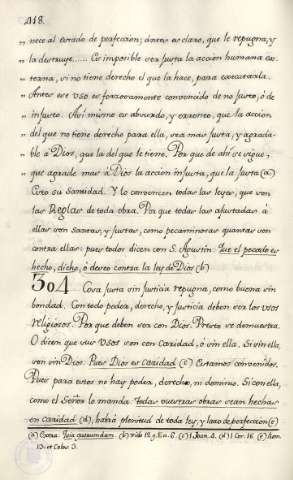 418.
„ nece al estado de perfeccion; antes es claro, que le repugna, y
„ la destruye..... Es imposible sea justa la acción humana ex-
„ terna, si no tiene derecho el que la hace, para executarla.
Antes ese uso es forzosamente convencido de no justo, ó de
injusto. Asi mismo es absurdo, y exceso, que la acción
del que no tiene derecho para ella, sea mas justa, y agrada-
ble á Dios, que la del que le tiene. Por que de ahí se sigue,
que agrade mas á Dios la acción injusta, que la justa (a)
Esto su Santidad. Y lo convencen todas las leyes, que son
las Reglas de toda obra. Por que todas las ajustadas á
ellas son santas, y justas, como pecaminosas quantas son
contra ellas: pues todos dicen con S. Agustin que el pecado es
hecho, dicho, ó deseo contra la ley de Dios (b)
504 Cosa justa sin justicia repugna, como buena sin
bondad. Con todo poder, derecho, y justicia deben ser los usos
religiosos. Por que deben ser con Dios. Presto se demuestra.
O dicen que sus usos son con caridad, ó sin ella. Si sin ella
son sin Dios. Pues Dios es caridad (c) Estamos convenidos.
Pues para estos no hay poder, derecho, ni dominio. Si con ella,
como el Señor lo manda todas vuestras obras sean hechas
en caridad (d), habrá plenitud de toda ley, y lazo de perfeccion (e)
(a) Extrav. Quia quorumdam (b) 12. q. (c) 1 Joan. 4. (d) 1 Cor. 16 (e) Rom.
13. et Colos 3.